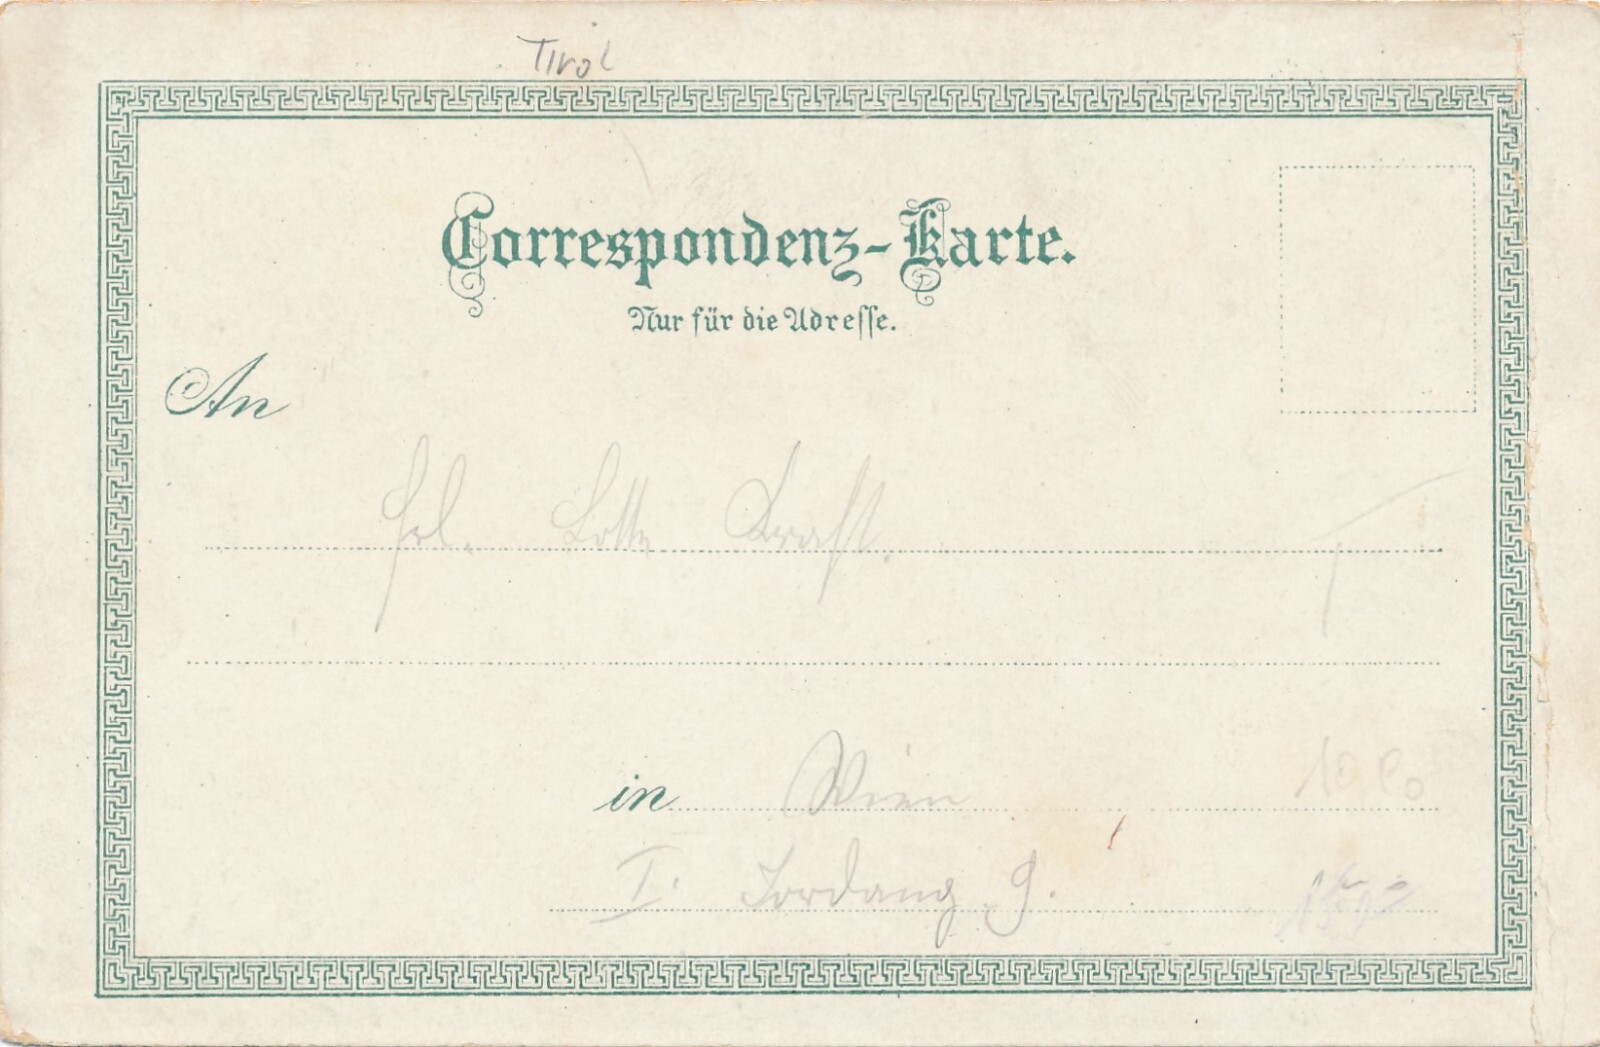 Tirol
Correspondenz-Karte.
Nur für die Adresse.
An
Frl. Lotte Kraft.
in Wien
I. Jordang. 9.